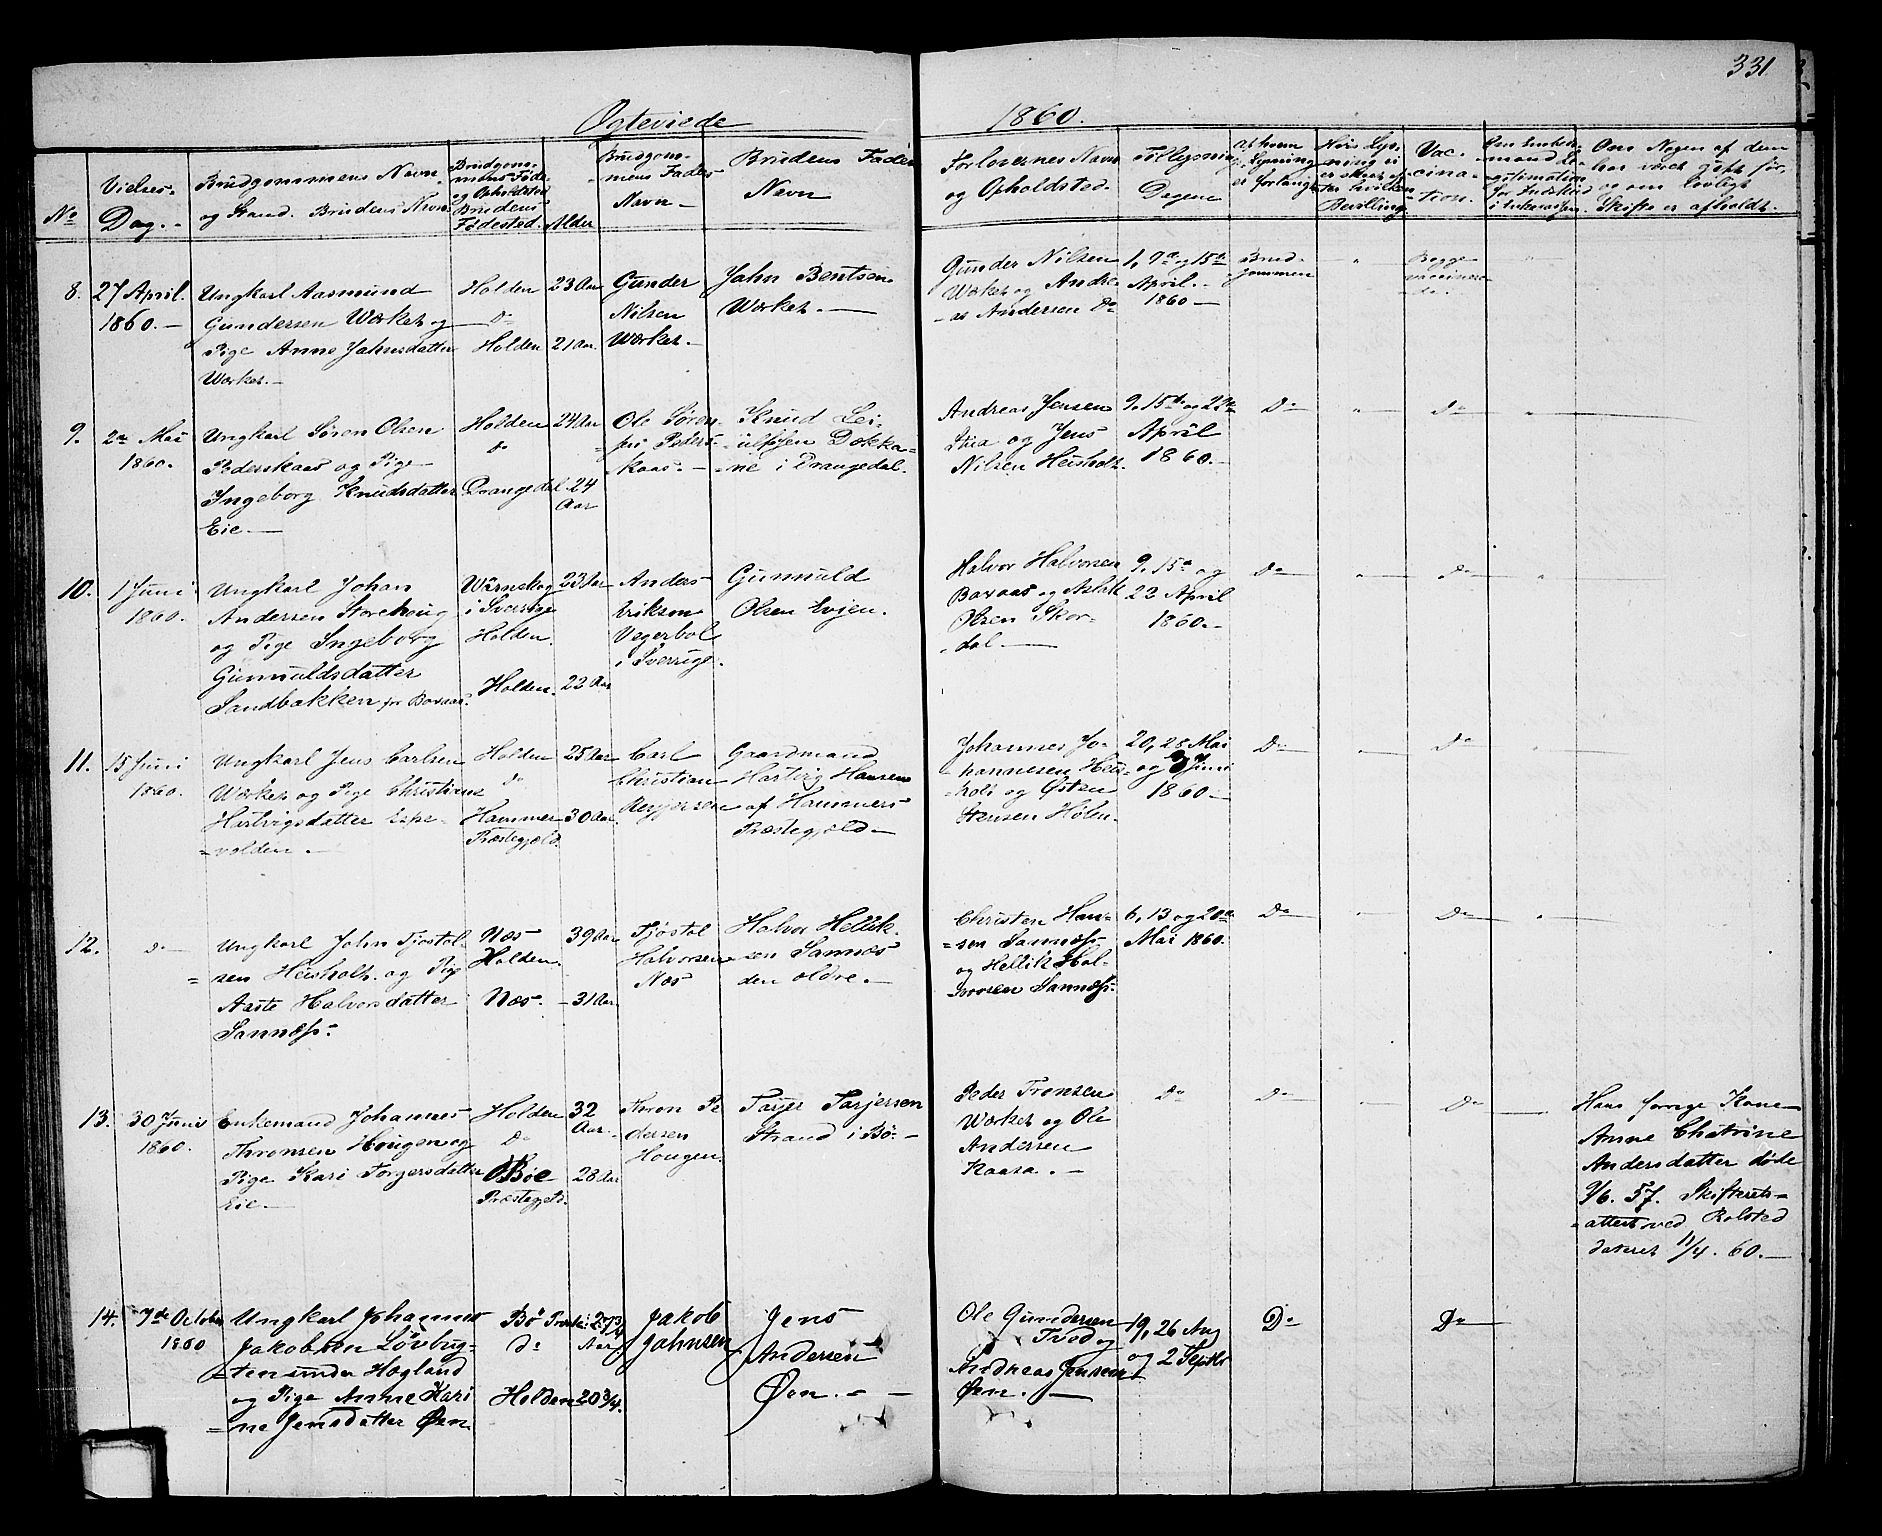 331
Ægteviede
1860.
No
Vielses-
Dag.-
Brudgommens Navn
og Stand. Brudens Navn
Brudgom-
mens Føde-
og Opholdsted
Brudens
Fødested.
Alder
Brudgom-
mens Faders
Navn-
Brudens Fader
Navn
Forlovernes Navn
og Opholdsted.
Tillysnings
Dagene
Af hvem
Lysning
er forlangt
Hvis Lys-
ning ei
er skeet ef-
ter hvilken
Bevilling
Vac-
cina-
tion.
Om Nogen af dem
har været gift før,
og om lovligt
Skifte er afholdt.
8.
27 April.
1860.-
Ungkarl Aasmund
Gundersen Værket og
Pige Anne Jahnsdatter
Værket.-
Holden
Do
Holden
23 Aar
21 Aar.
Gunder
Nilsen
Værket.-
Jahn Bentsen
Værket.-
Gunder Nilsen
Værket og Andre-
as Andersen Do
1, 9de og 15de
April.
1860-
Brud-
gommen
"
Begge
vaccinere-
de.
"
9.
2den Mai
1860.
Ungkarl Søren Olsen
Pederskaas og Pige
Ingeborg Knudsdatter
Eie.-
Holden
do
Drangedal
24 Aar
24
Aar
Ole Søren-
sen Peders-
kaas.-
Knud Lei-
ulfsen Dokka-
ne i Drangedal.
Andreas Jensen
Stia og Jens
Nilsen Heisholt.
9, 15de og 22de
April
1860.-
Do
"
Do
"
10.
1 Juni
1860.
Ungkarl Johan
Andersen Storehaug
og Pige Ingeborg
Gunnuldsdatter
Sandbakken før Boraas.
Värnskog
i Sverige
Holden
Holden.
23 Aar
22 Aar
Anders
Erikson
Vegerbol
i Sverrige.
Gunnuld
Olsen Evjen.
Halvor Halvorsen
Boraas og Aslak
Olsen Skor-
dal.-
9, 15de og
22 April
1860.-
Do
"
Do
"
11.
15 Juni
1860.
Ungkarl Jens Carlsen
Værket og Pige Christiane
Hartvigsdatter Eids-
volden.-
Holden
do
Hammer
Præstegjeld.
25 Aar
30 Aar.
Carl
Christian
Hartvig Hansen
Gaardmand
af Hammers
Præstegjeld.-
Johannes Jo-
hannesen Heis-
holt og Østen
Stensen Holen.
20, 28 Mai
og 3 Juni
1860.-
Do
"
Do
"
12.
do
Ungkarl John Tjostol-
sen Heisholt og Pige
Aaste Halvorsdatter
Sannæs.
Næs
Holden.
Næs.
39 Aar
31 Aar.
Tjøstol
Halvorsen
Næs
Halvor Hellik-
sen Sannæs
den ældre.-
Christen Han-
sen Sannæs
og Hellik Hal-
vorsen Sannæs.
6, 13 og 20de
Mai 1860.
Do
"
Do
"
13.
30 Juni
1860.
Enkemand Johannes
Thronsen Hougen og
Pige Kari Torgersdatter
Eie.-
Holden
Do
Bøe
Præstegjeld.
32
Aar.
28 Aar
Thron Pe-
dersen
Hougen.
Tarjer Tarjersen
Strand i Bø.-
Peder Tronsen
Værket og Ole
Andersen
Kaasa.-
Do
Do
Do
Hans forrige Kone
Anne Chatrine
Andersdatter døde
9/6. 57. Skifterets-
attest ved Rolsted
dateret 11/4. 60.-
14.
7de October
1860
Ungkarl Johannes
Jakobsen Løvbug-
ten under Hogland
og Pige Anne Kari-
ne Jensdatter Øen
Bø
do
Holden
27 3/4
Aar
20 3/4.
Jakob
Jahnsen
Jens
Andersen
Øen.-
Ole Gundersen
Tved og
Andreas Jensen
Øen.-
19, 26 Aug
og 2 Septbr
Do
Do